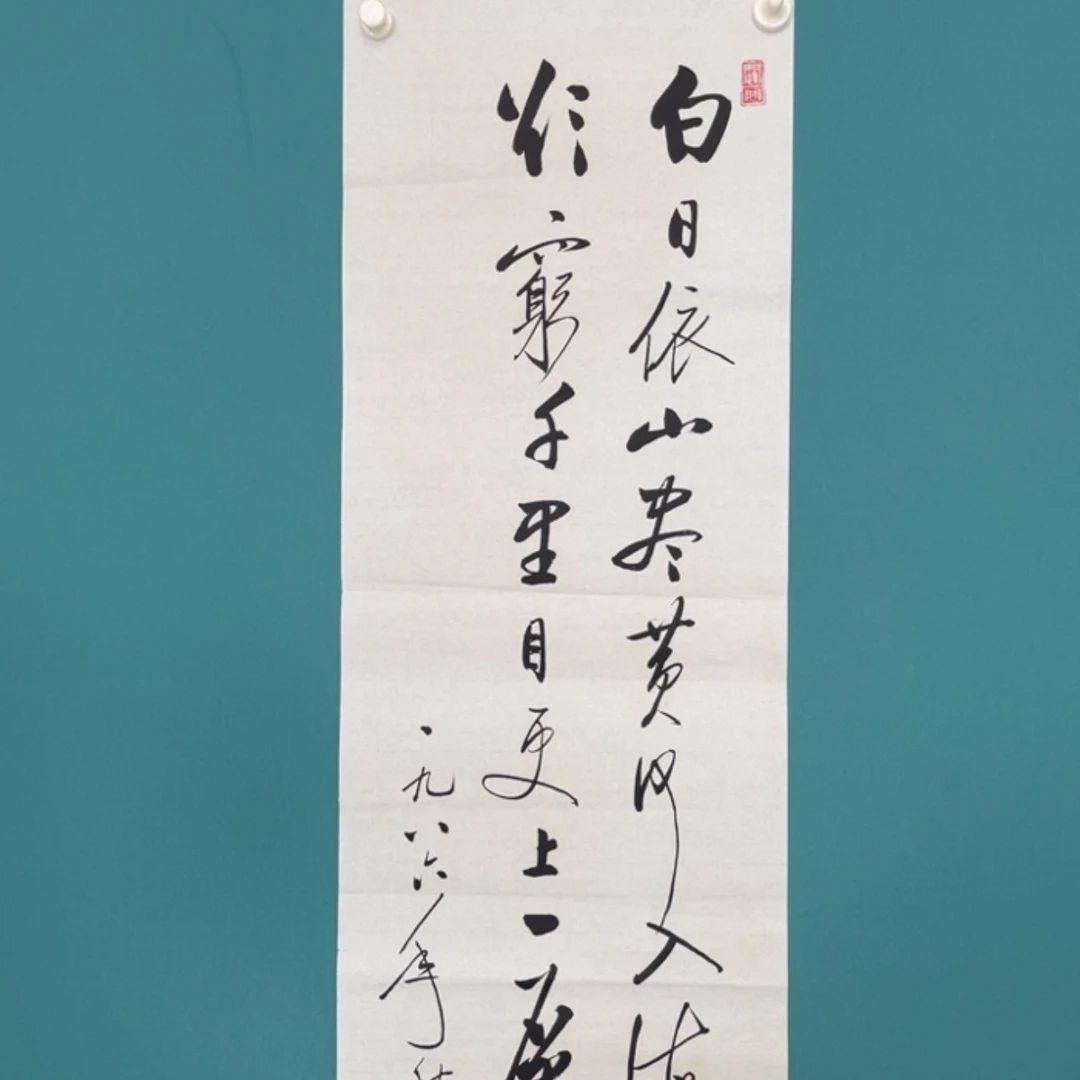 白日依山尽黄河入海
欲穷千里目更上一层
一九八六年秋